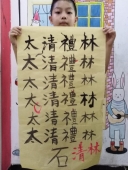 林林林林林林
禮禮禮禮禮禮
清清清清清清
太太太太太太
石
清林